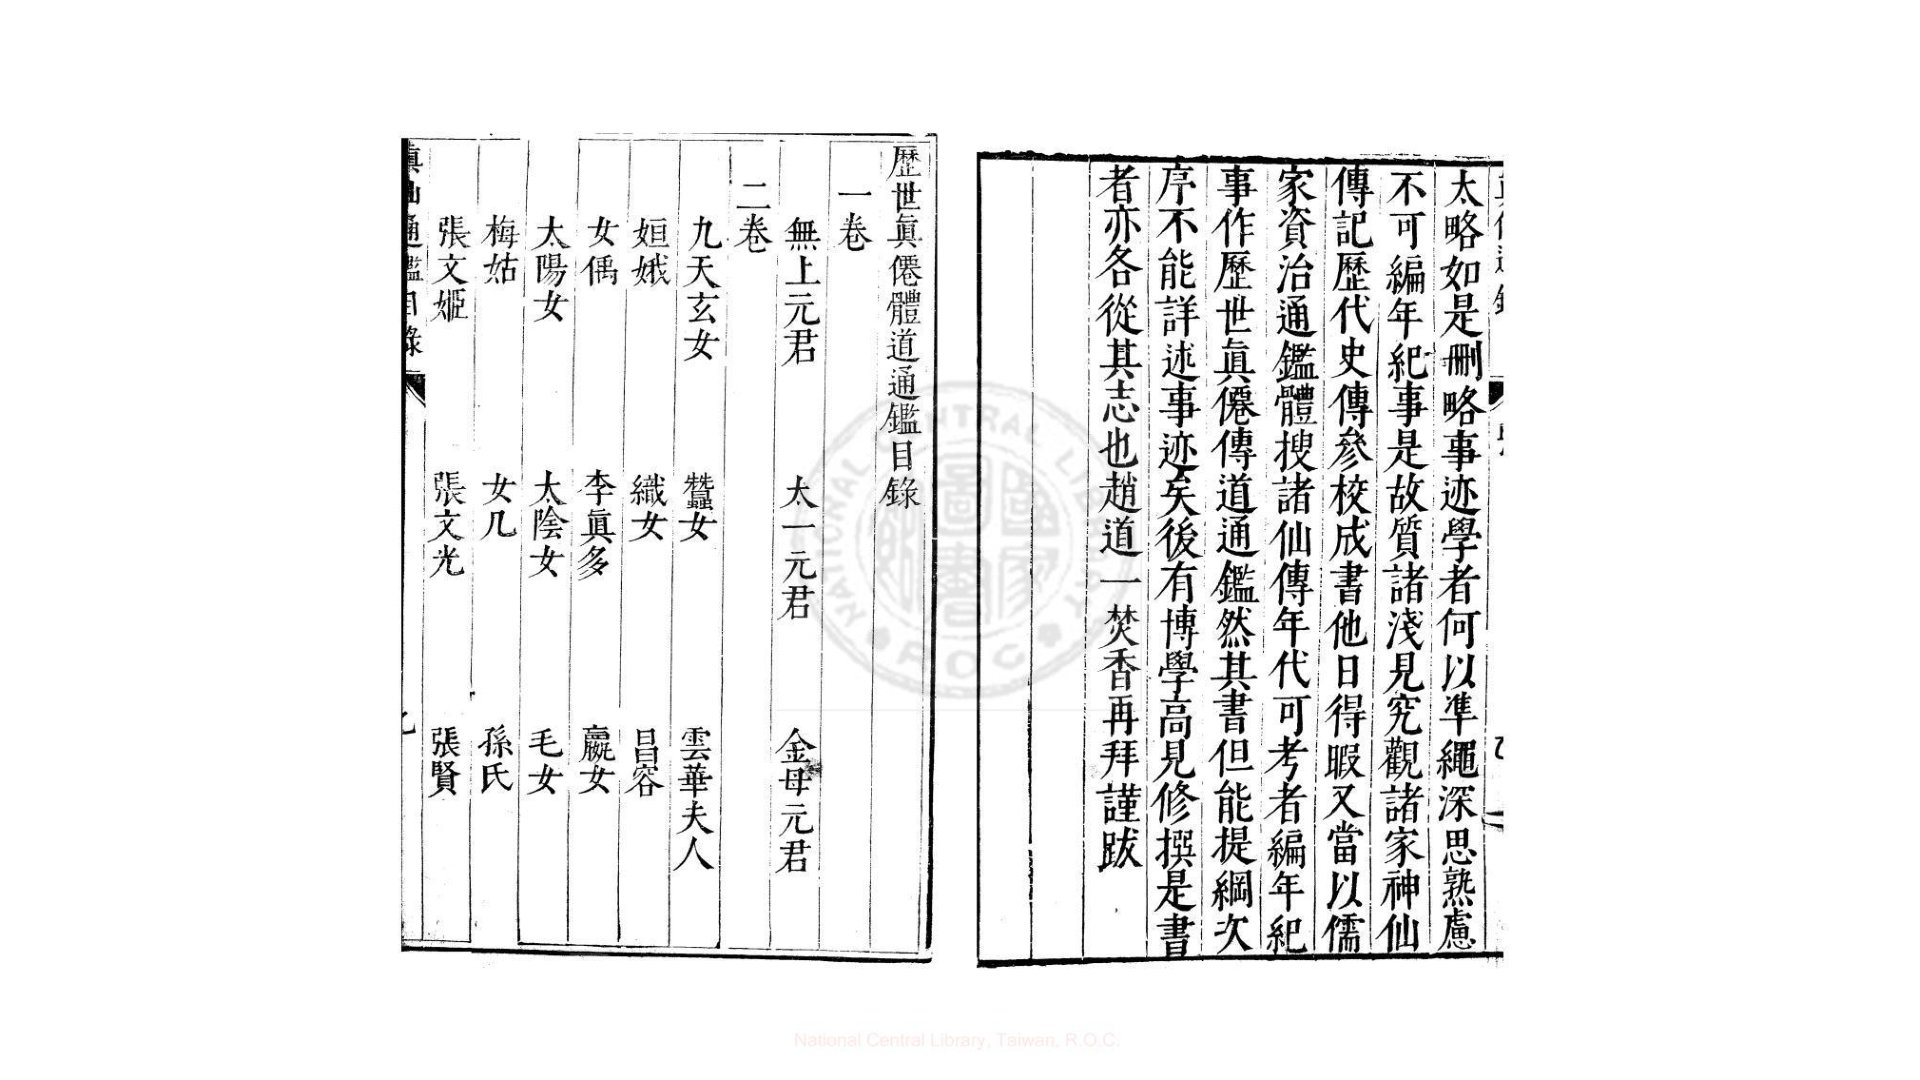 太略如是刪略事迹學者何以準繩深思熟慮
不可編年紀事是故質諸淺見究觀諸家神仙
傳記歷代史傳參校成書他日得暇又當以儒
家資治通鑑體搜諸仙傳年代可考者編年紀
事作歷世眞僊傳道通鑑然其書但能提綱次
序不能詳述事迹矣後有博學高見修撰是書
者亦各從其志也趙道一焚香再拜謹跋
歷世眞僊體道通鑑目錄
一卷
無上元君 太一元君 金母元君
二卷
九天玄女 蠶女 雲華夫人
姮娥 織女 昌容
女偊 李眞多 嬴女
太陽女 太陰女 毛女
梅姑 女几 孫氏
張文姬 張文光 張賢
眞仙通鑑目錄
NATIONAL CENTRAL LIBRARY
ROC
國家圖書館
National Central Library, Taiwan, R.O.C.